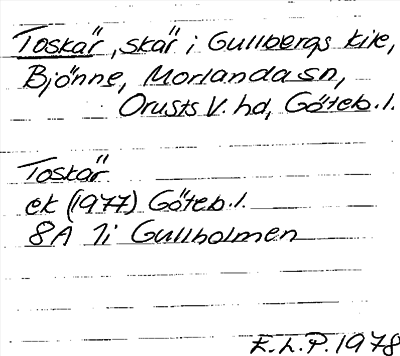 Toskär, skär i Gullbergs kile,
Bjönne, Morlanda sn,
Orusts V. hd, Göteb. l.
Toskär
ek (1977) Göteb. l.
8A 7i Gullholmen
E.L.P. 1978